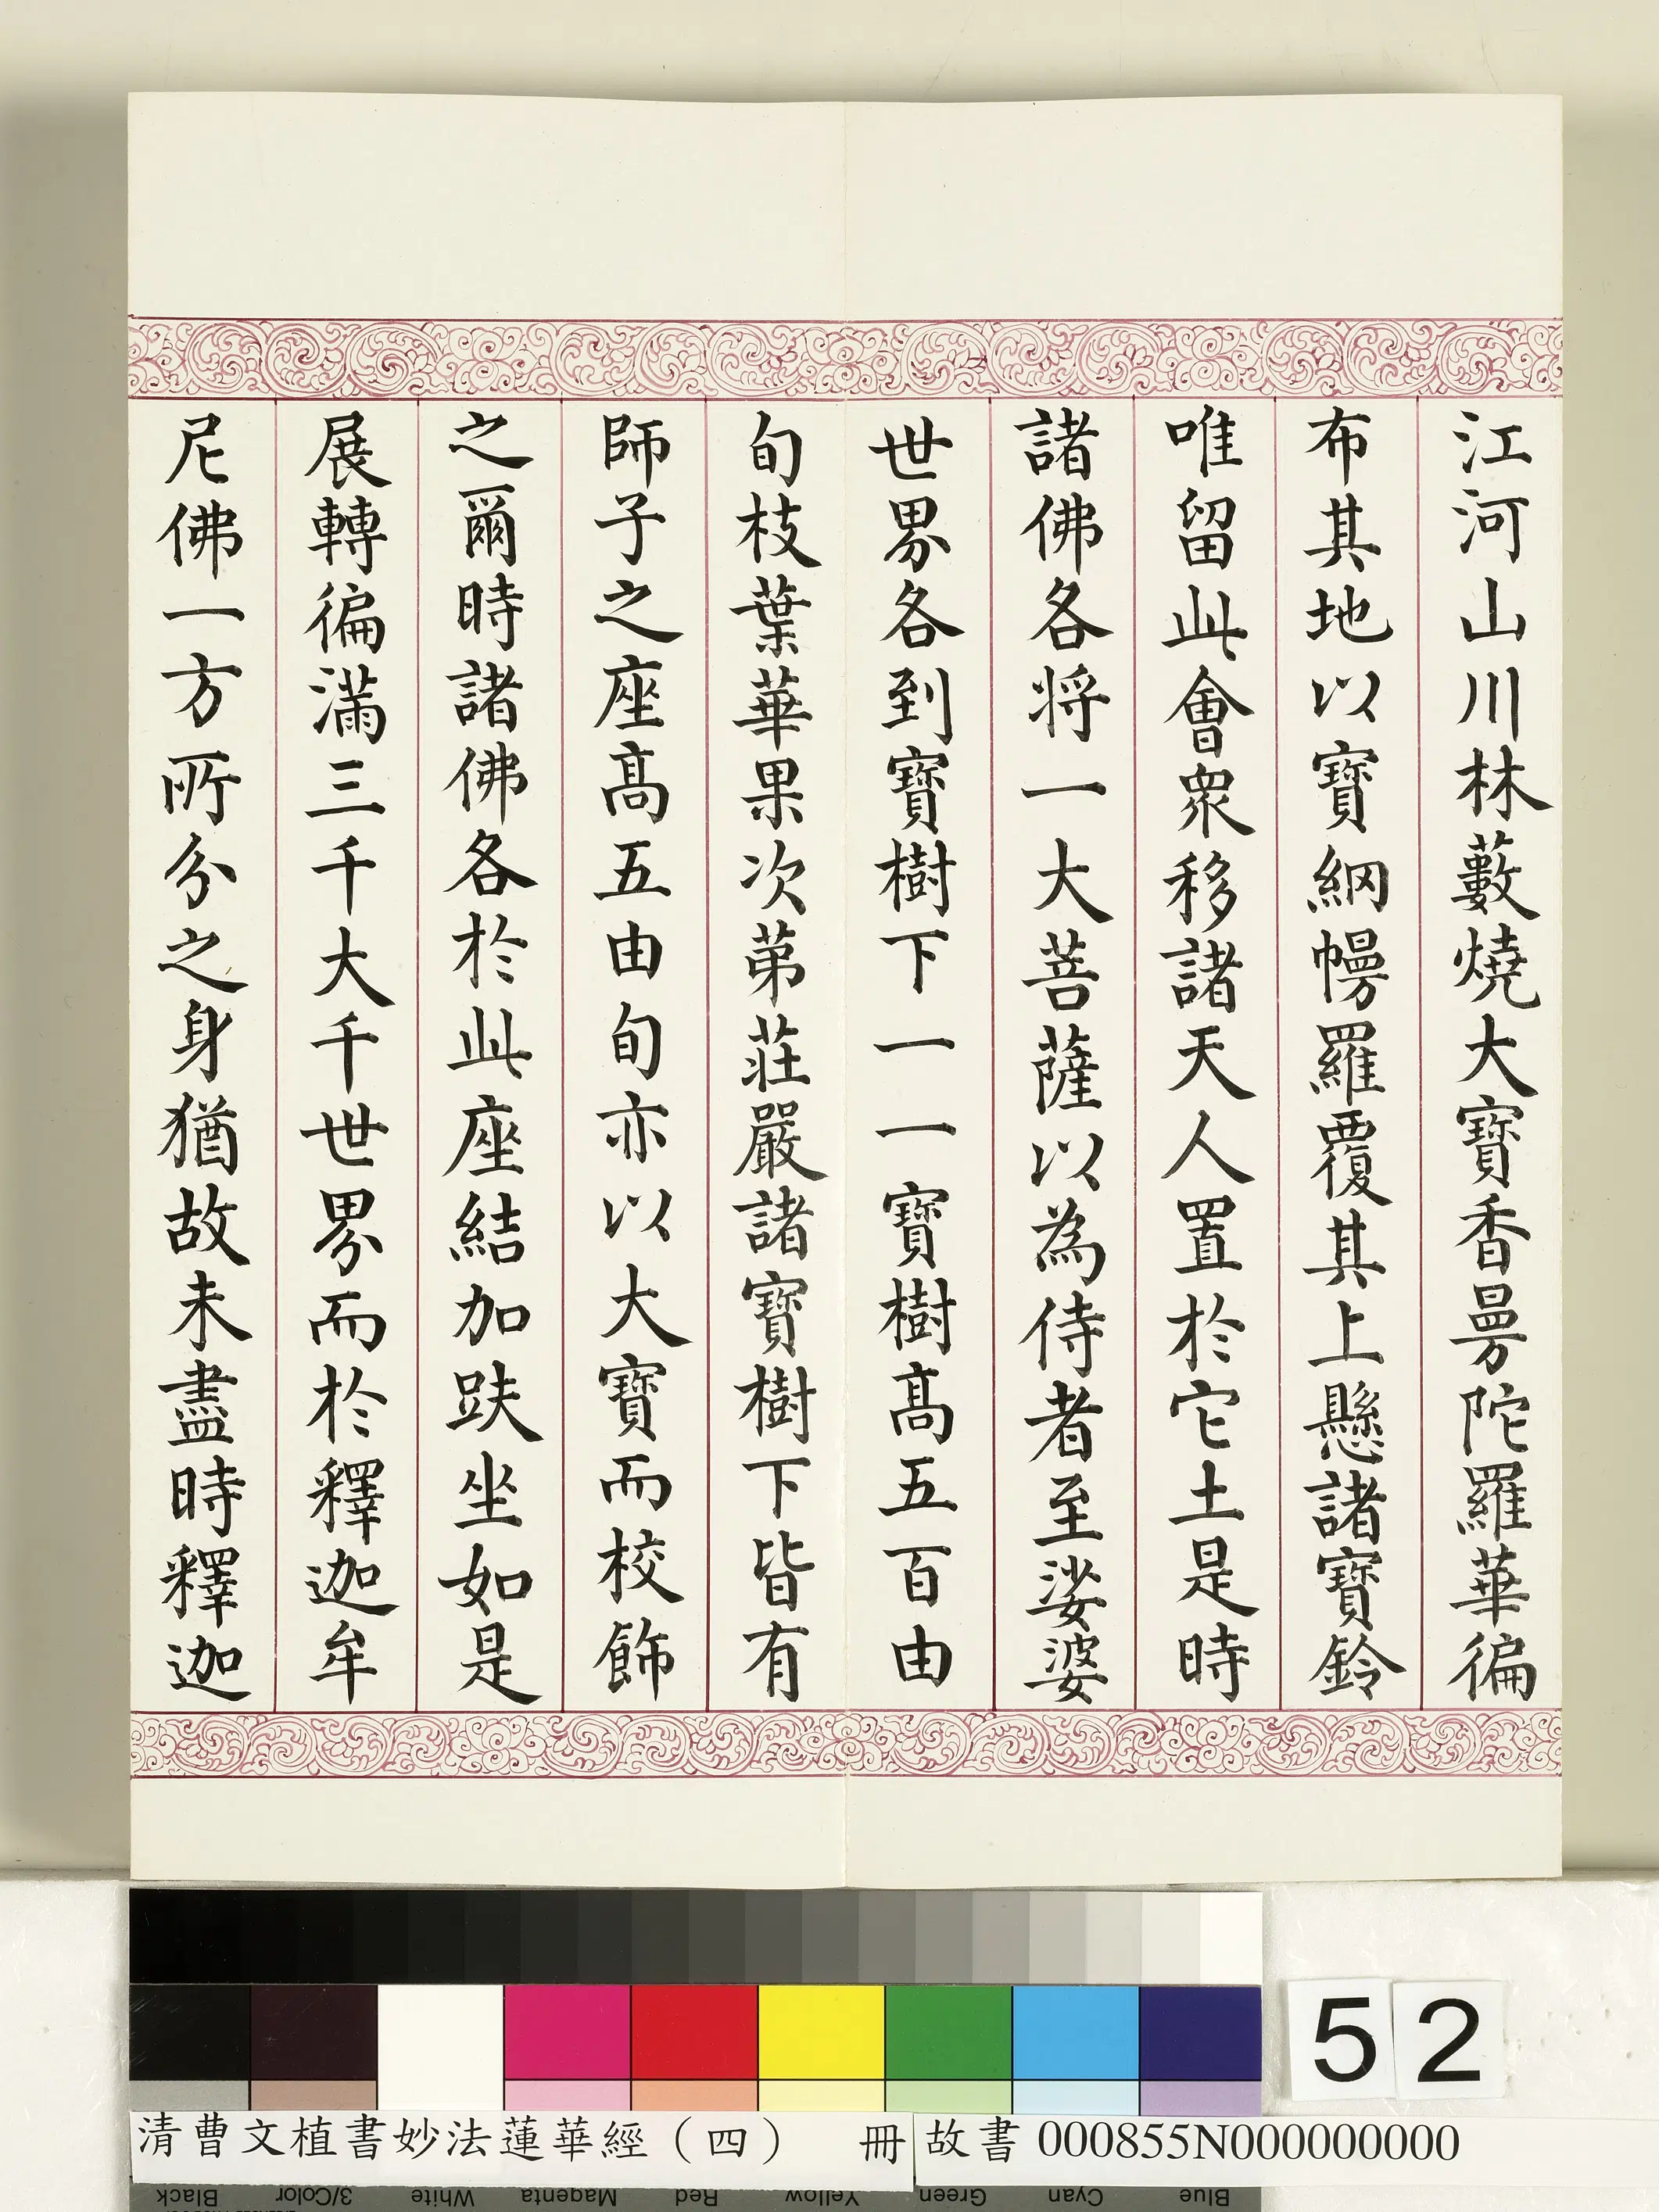 江河山川林藪燒大寶香曼陀羅華徧
布其地以寶網幔羅覆其上懸諸寶鈴
唯留此會眾移諸天人置於它土是時
諸佛各將一大菩薩以為侍者至娑婆
世界各到寶樹下一一寶樹高五百由
旬枝葉華果次第莊嚴諸寶樹下皆有
師子之座高五由旬亦以大寶而校飾
之爾時諸佛各於此座結加趺坐如是
展轉徧滿三千大千世界而於釋迦牟
尼佛一方所分之身猶故未盡時釋迦
52
清曹文植書妙法蓮華經（四） 冊
故書 000855N000000000
Black 3/Color White Magenta Red Yellow Green Cyan Blue